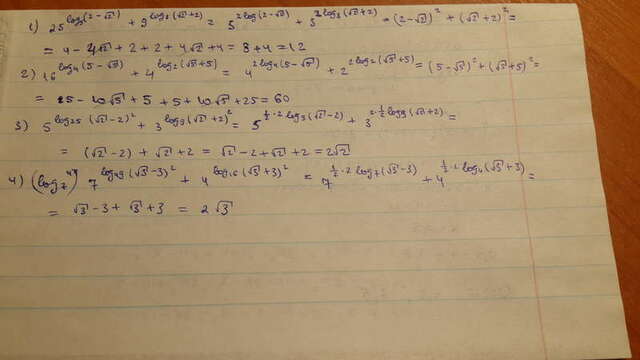 1) 25^log₅(2-√2) + 9^log₃(√2+2) = 5^2log₅(2-√2) + 3^2log₃(√2+2) = (2-√2)² + (√2+2)² =
= 4 - 4√2 + 2 + 2 + 4√2 + 4 = 8 + 4 = 12
2) 16^log₄(5-√5) + 4^log₂(√5+5) = 4^2log₄(5-√5) + 2^2log₂(√5+5) = (5-√5)² + (√5+5)² =
= 25 - 10√5 + 5 + 5 + 10√5 + 25 = 60
3) 5^log₂₅(√2-2)² + 3^log₉(√2+2)² = 5^½·2log₅(√2-2) + 3^2·½log₃(√2+2) =
= (√2-2) + √2+2 = √2-2+√2+2 = 2√2
4) 7^log₄₉(√3-3)² + 4^log₁₆(√3+3)² = 7^½·2log₇(√3-3) + 4^½·2log₄(√3+3) =
= √3-3 + √3+3 = 2√3